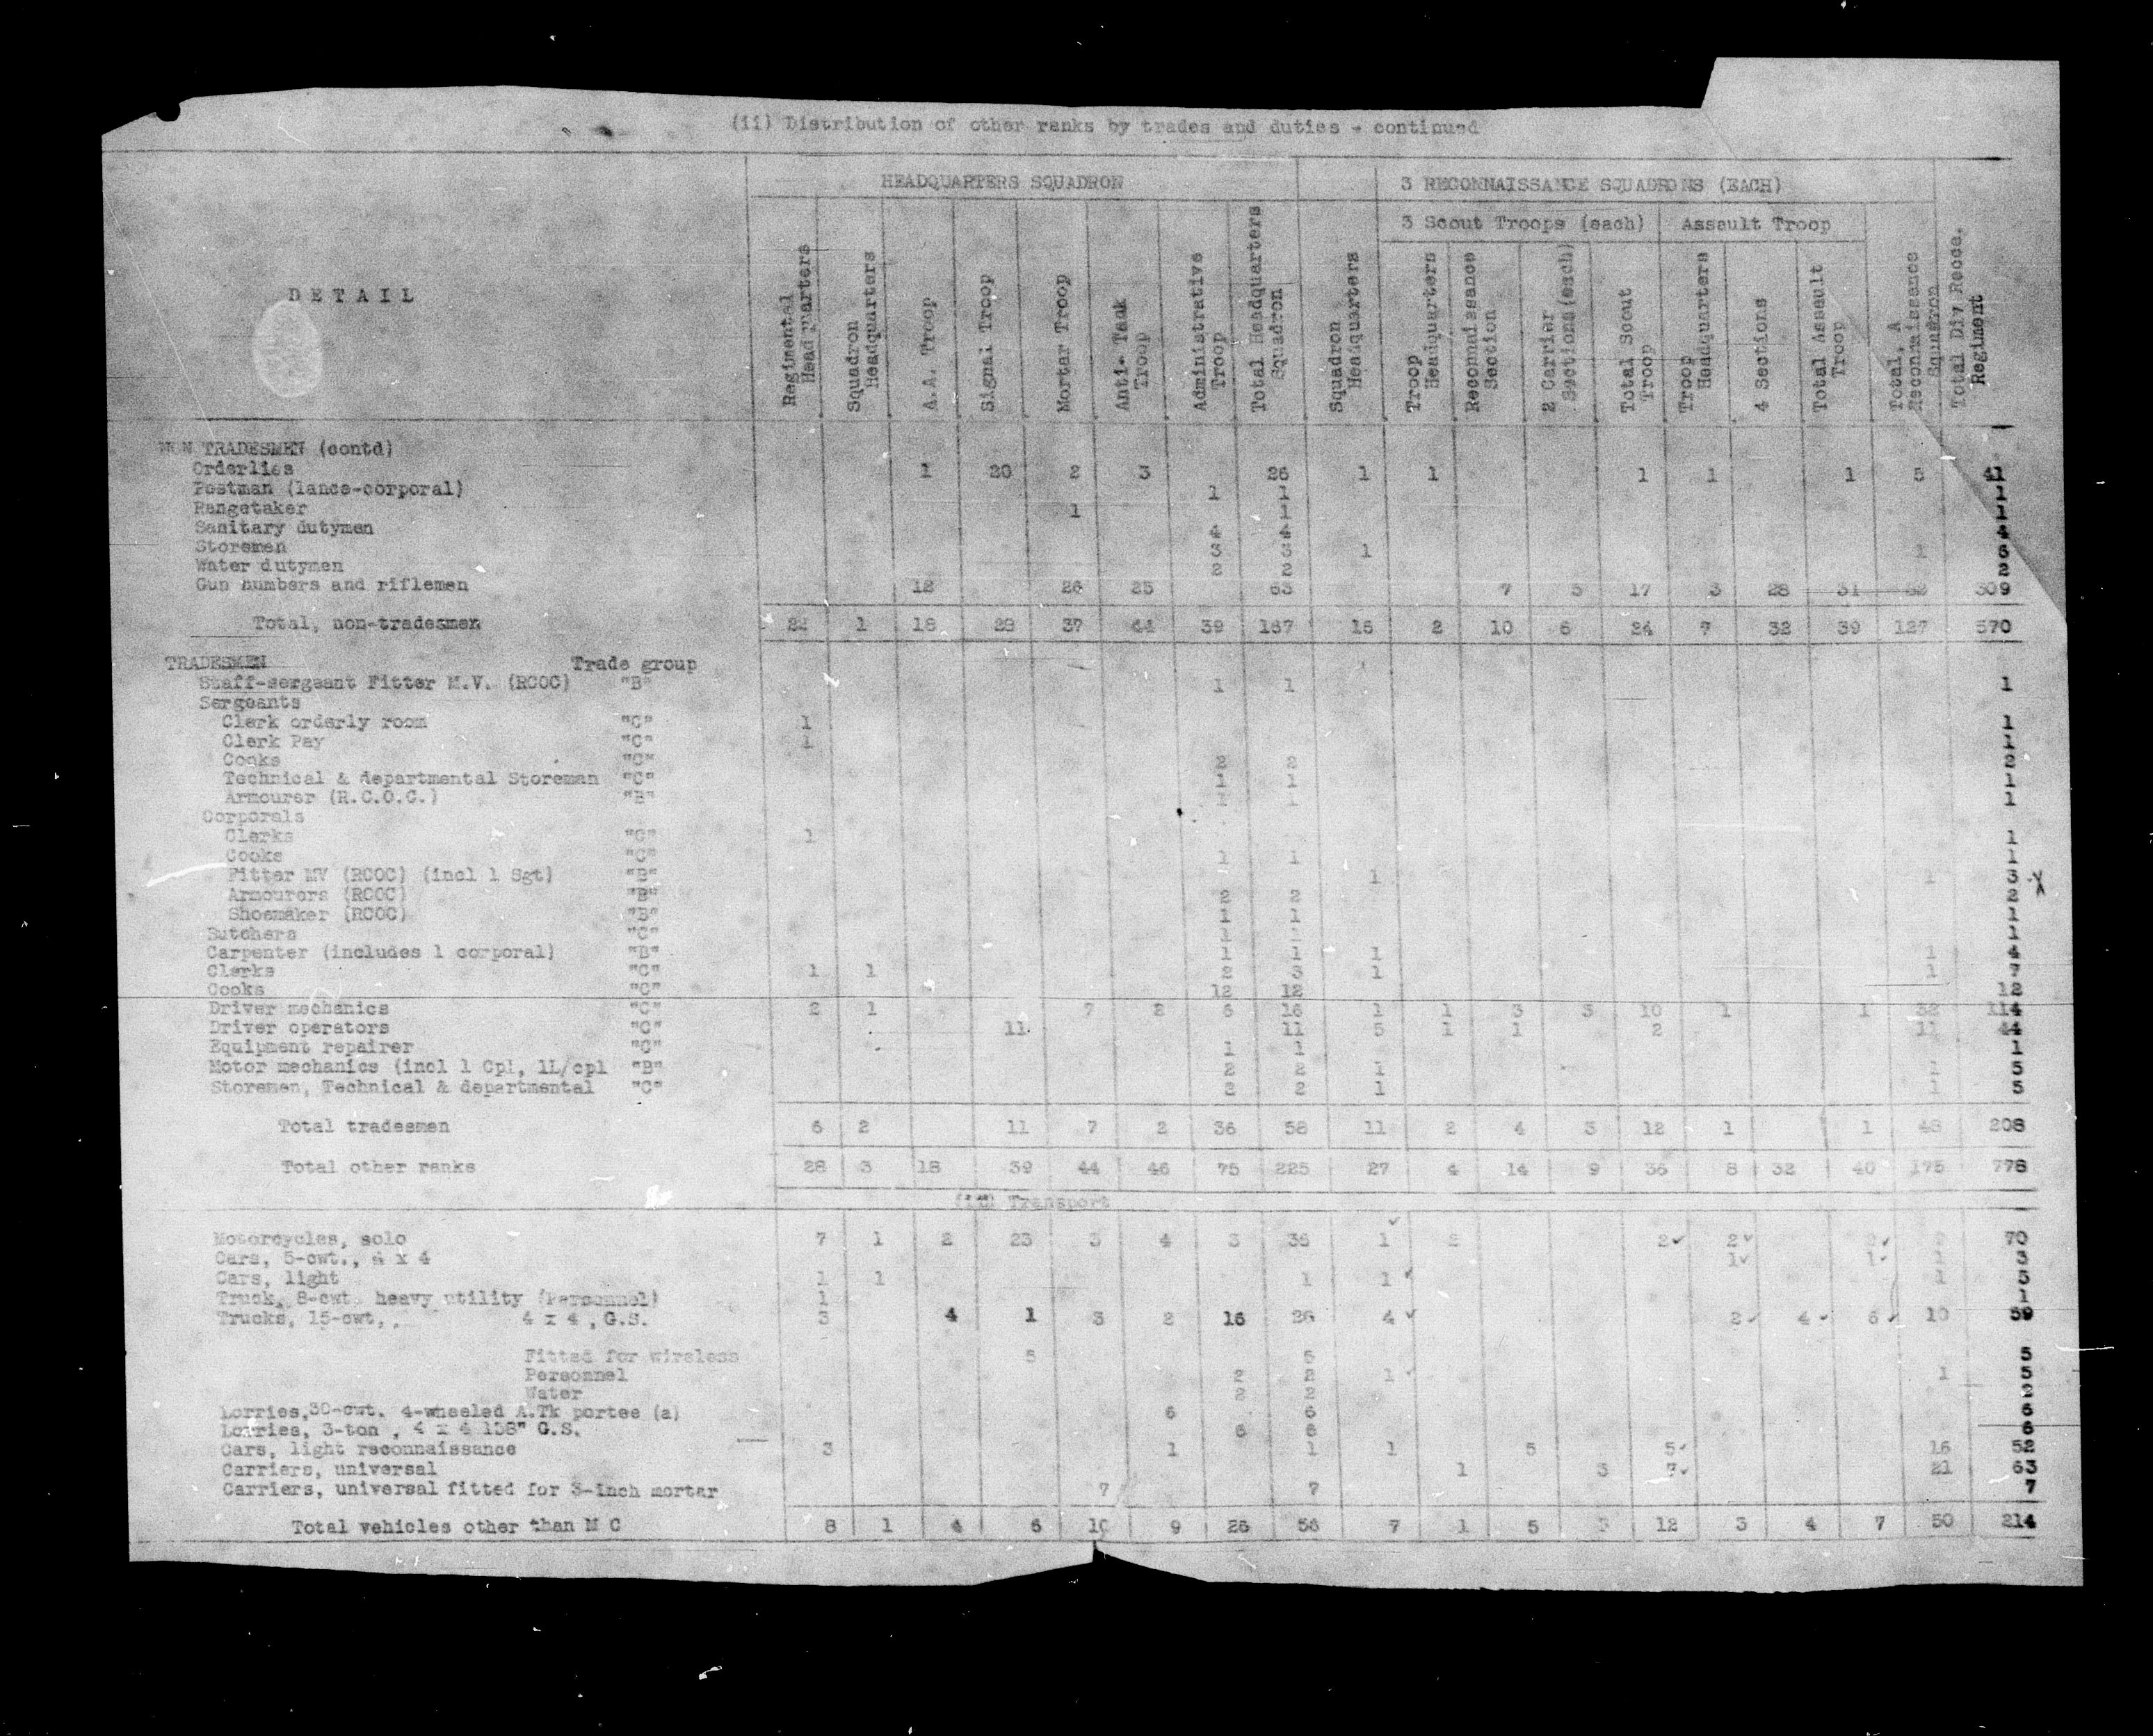 (ii) Distribution of other ranks by trades and duties - continued
HEADQUARTERS SQUADRON 3 RECONNAISSANCE SQUADRONS (EACH)
3 Scout Troops (each) Assault Troop
DETAIL
Regimental Headquarters
Squadron Headquarters
A.A. Troop
Signal Troop
Mortar Troop
Anti-Tank Troop
Administrative Troop
Total Headquarters Squadron
Squadron Headquarters
Troop Headquarters
Reconnaissance Section
2 Carrier Sections (each)
Total Scout Troop
Troop Headquarters
4 Sections
Total Assault Troop
Total, A Reconnaissance Squadron
Total Div Recce. Regiment
NON TRADESMEN (contd)
Orderlies 1 20 2 3 26 1 1 1 1 1 5 41
Postman (lance-corporal) 1 1 1
Rangetaker 1 1 1
Sanitary dutymen 4 4 4
Storemen 3 3 1 1 6
Water dutymen 2 2 2
Gun numbers and riflemen 12 26 25 63 7 3 17 3 28 31 82 309
Total, non-tradesmen 22 1 18 28 37 44 39 167 16 2 10 6 24 7 32 39 127 570
TRADESMEN Trade group
Staff-sergeant Fitter M.V. (RCOC) "B" 1 1 1
Sergeants
Clerk orderly room "C" 1 1
Clerk Pay "C" 1 1
Cooks "C" 2 2 2
Technical & departmental Storeman "C" 1 1 1
Armourer (R.C.O.C.) "B" 1 1 1
Corporals
Clerks "C" 1 1
Cooks "C" 1 1 1
Fitter MV (RCOC) (incl 1 Sgt) "B" 1 1 3
Armourers (RCOC) "B" 2 2 2
Shoemaker (RCOC) "B" 1 1 1
Butchers "C" 1 1 1
Carpenter (includes 1 corporal) "B" 1 1 1 1 4
Clerks "C" 1 1 2 3 1 1 7
Cooks "C" 12 12 12
Driver mechanics "C" 2 1 7 2 6 16 1 1 3 3 10 1 1 32 114
Driver operators "C" 11 11 5 1 1 2 11 44
Equipment repairer "C" 1 1 1
Motor mechanics (incl 1 Cpl, 1L/cpl "B" 2 2 1 1 5
Storemen, Technical & departmental "C" 2 2 1 1 5
Total tradesmen 6 2 11 7 2 36 58 11 2 4 3 12 1 1 48 208
Total other ranks 28 3 18 39 44 46 75 225 27 4 14 9 36 8 32 40 175 778
(iii) Transport
Motorcycles, solo 7 1 2 23 3 4 3 36 1 2 2 2 2 70
Cars, 5-cwt., 4 x 4 1 1 1 3
Cars, light 1 1 1 1 1 5
Truck, 8-cwt. heavy utility (Personnel) 1 1
Trucks, 15-cwt., 4 x 4, G.S. 3 4 1 3 2 16 26 4 2 4 6 10 59
Fitted for wireless 5 5 5
Personnel 2 2 1 1 5
Water 2 2 2
Lorries, 30-cwt. 4-wheeled A.Tk portee (a) 6 6 6
Lorries, 3-ton, 4 x 4 158" G.S. 6 6 6
Cars, light reconnaissance 3 1 1 1 5 5 16 52
Carriers, universal 1 3 7 21 63
Carriers, universal fitted for 3-inch mortar 7 7 7
Total vehicles other than M C 8 1 4 6 10 9 26 56 7 1 5 3 12 3 4 7 50 214